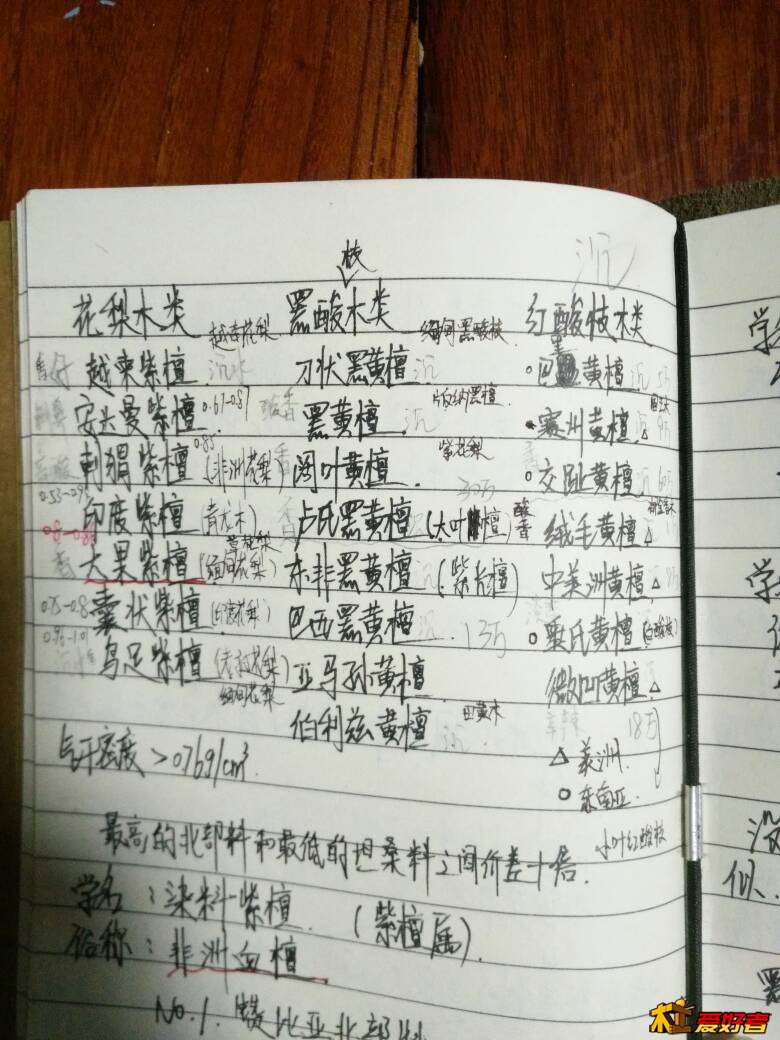 枝
沉
花梨木类 黑酸木类 红酸枝木类
越南花梨 缅甸黑酸枝
越柬紫檀 沉水 刀状黑黄檀 沉 巴里黄檀 沉
版纳黑檀
安达曼紫檀 0.67-0.87 酸香 黑黄檀 沉 赛州黄檀 △
0.85 紫花梨
刺猬紫檀 (非洲花梨) 香 阔叶黄檀 交趾黄檀
0.53-0.94 30万
印度紫檀 (青龙木) 卢氏黑黄檀 (大叶檀) 酸香 绒毛黄檀 △
0.8-0.86 草花梨
香 大果紫檀 (缅甸花梨) 东非黑黄檀 沉 (紫光檀) 中美洲黄檀 △
0.75-0.8
囊状紫檀 (印度花梨) 巴西黑黄檀 沉 13万 奥氏黄檀 (白酸枝)
0.96-1.01
鸟足紫檀 (老挝花梨) 亚马孙黄檀 微凹黄檀 △
缅甸花梨
伯利兹黄檀 沉 辛辣 18万
△ 美洲.
气干密度 >0.76g/cm³. ○ 东南亚.
小叶红酸枝
最高的北部料和最低的坦桑料之间价差十倍.
学名:染料紫檀. (紫檀属)
俗称:非洲血檀
No.1. 赞比亚北部料
学
学
没
似.
爱好者